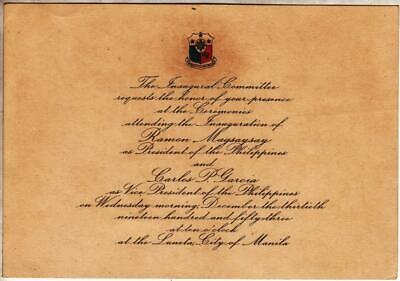 The Inaugural Committee
requests the honor of your presence
at the Ceremonies
attending the Inauguration of
Ramon Magsaysay
as President of the Philippines
and
Carlos P. Garcia
as Vice President of the Philippines
on Wednesday morning, December the thirtieth
nineteen hundred and fifty three
at ten o'clock
at the Luneta, City of Manila